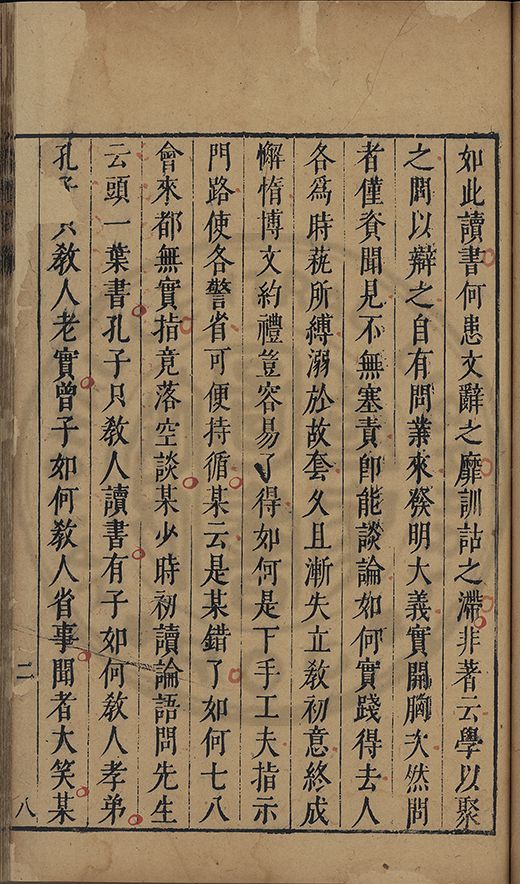 如此讀書何患文辭之靡訓詁之滯非著云學以聚
之問以辯之自有問業來發明大義實開胸次然問
者僅資聞見不無塞責即能談論如何實踐得去人
各爲時蓺所縛溺於故套久且漸失立敎初意終成
懈惰博文約禮豈容易了得如何是下手工夫指示
門路使各警省可便持循某云是某錯了如何七八
會來都無實指竟落空談某少時初讀論語問先生
云頭一葉書孔子只敎人讀書有子如何敎人孝弟
孔 敎人老實曾子如何敎人省事聞者大笑某
二
八